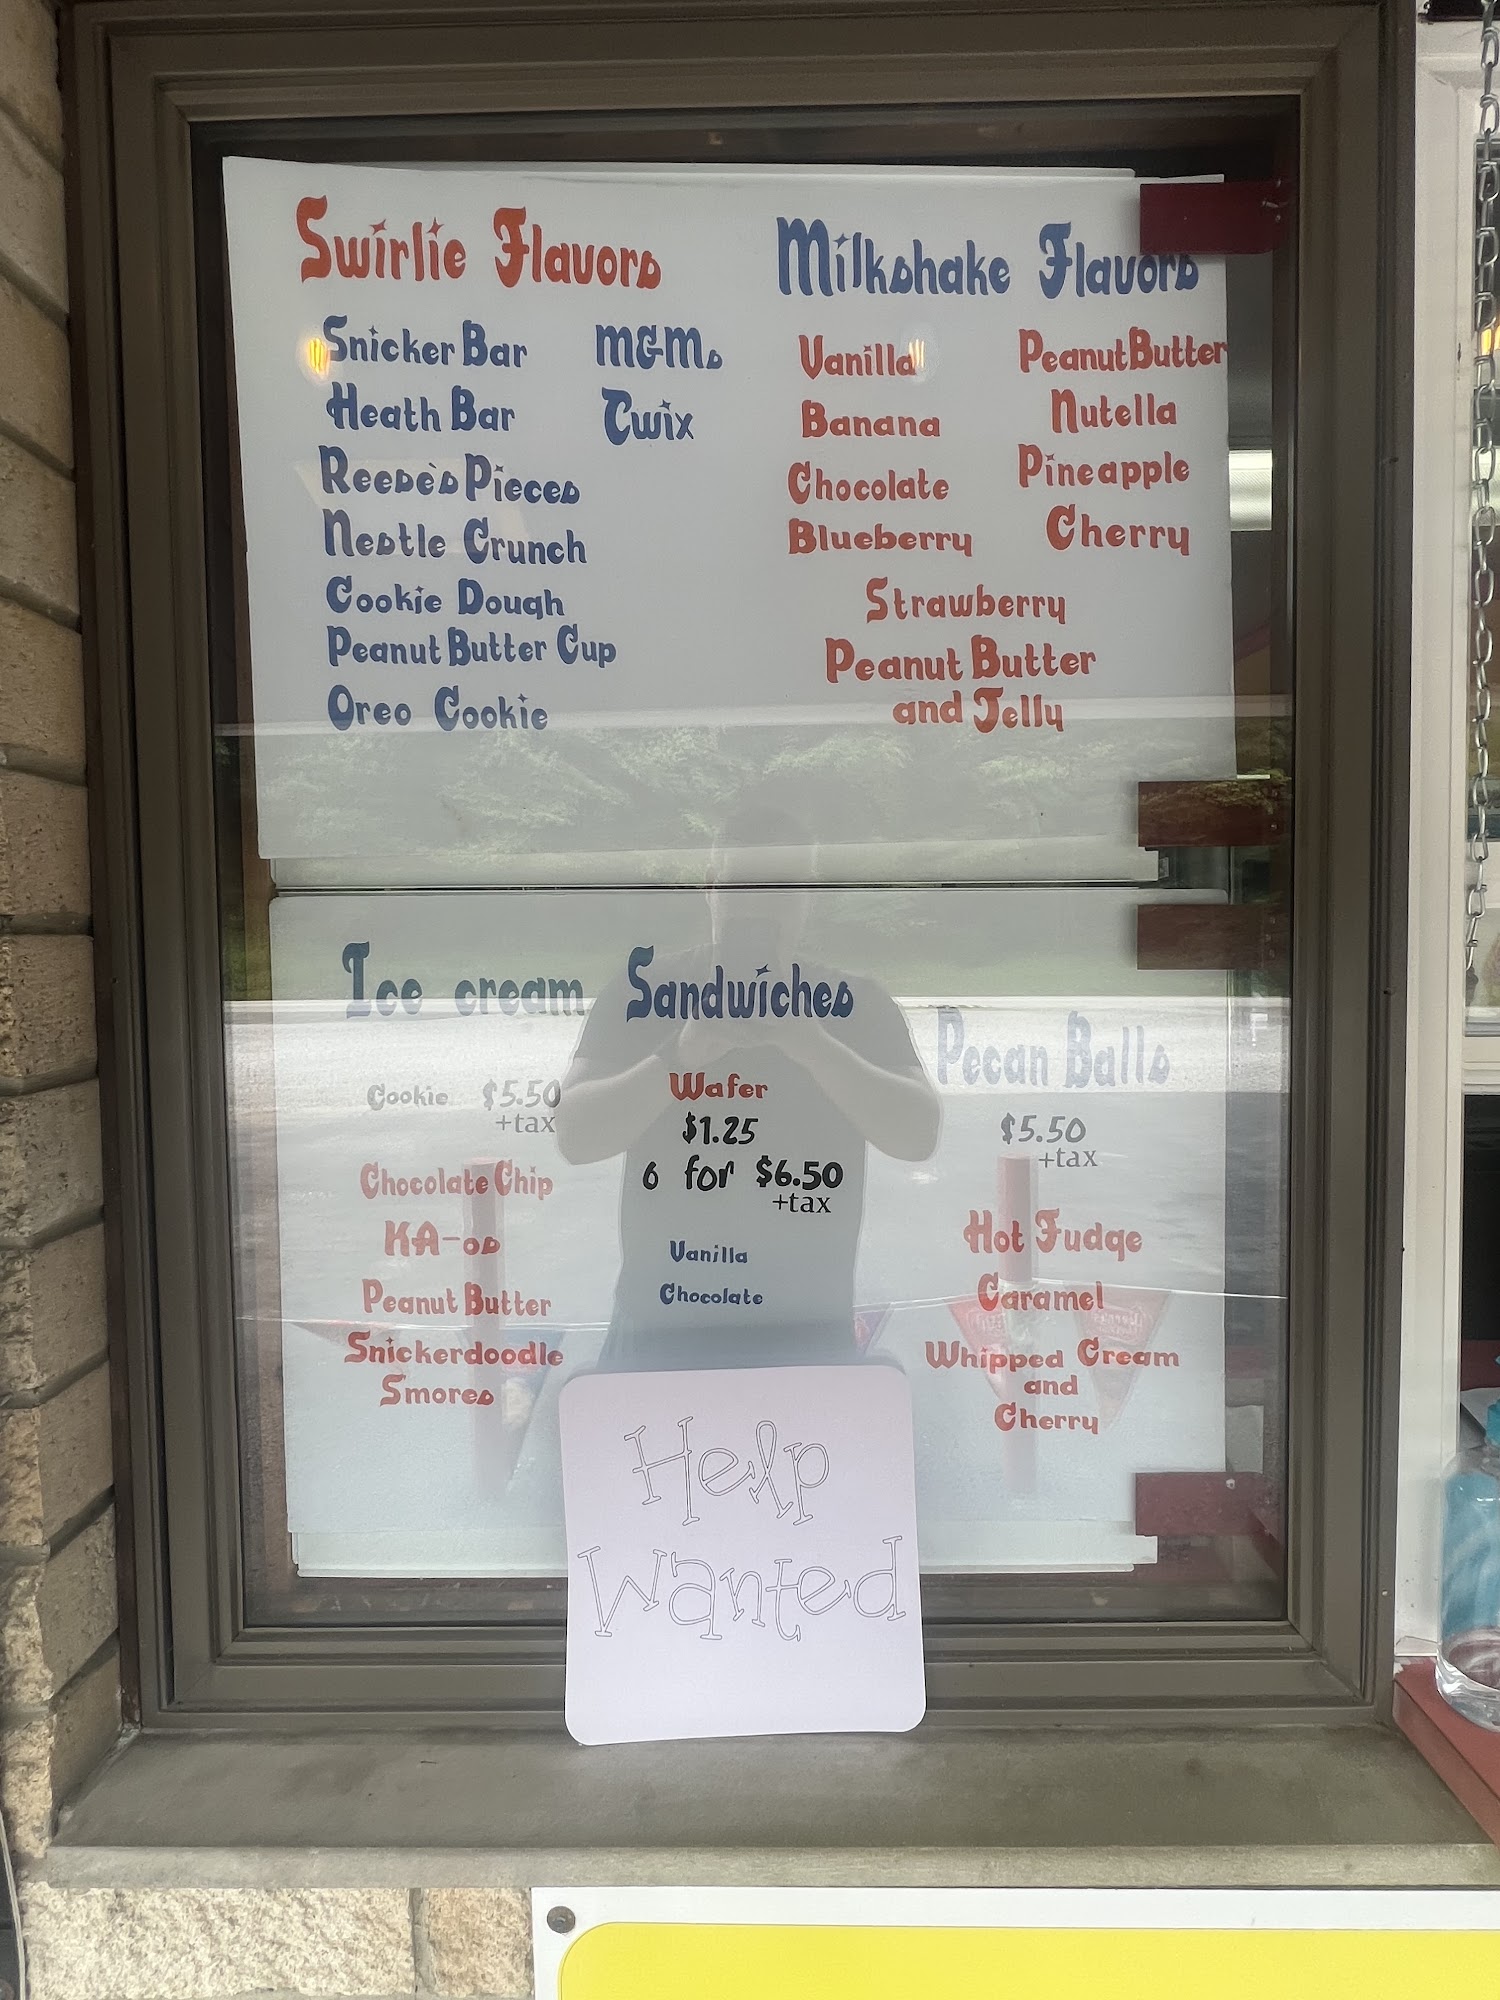 Swirlie Flavors
Snicker Bar
M&Ms
Heath Bar
Twix
Reese's Pieces
Nestle Crunch
Cookie Dough
Peanut Butter Cup
Oreo Cookie
Milkshake Flavors
Vanilla
Peanut Butter
Banana
Nutella
Chocolate
Pineapple
Blueberry
Cherry
Strawberry
Peanut Butter
and Jelly
Ice cream Sandwiches
Cookie $5.50
+tax
Chocolate Chip
KA-os
Peanut Butter
Snickerdoodle
Smores
Wafer
$1.25
6 for $6.50
+tax
Vanilla
Chocolate
Pecan Balls
$5.50
+tax
Hot Fudge
Caramel
Whipped Cream
and
Cherry
Help
Wanted